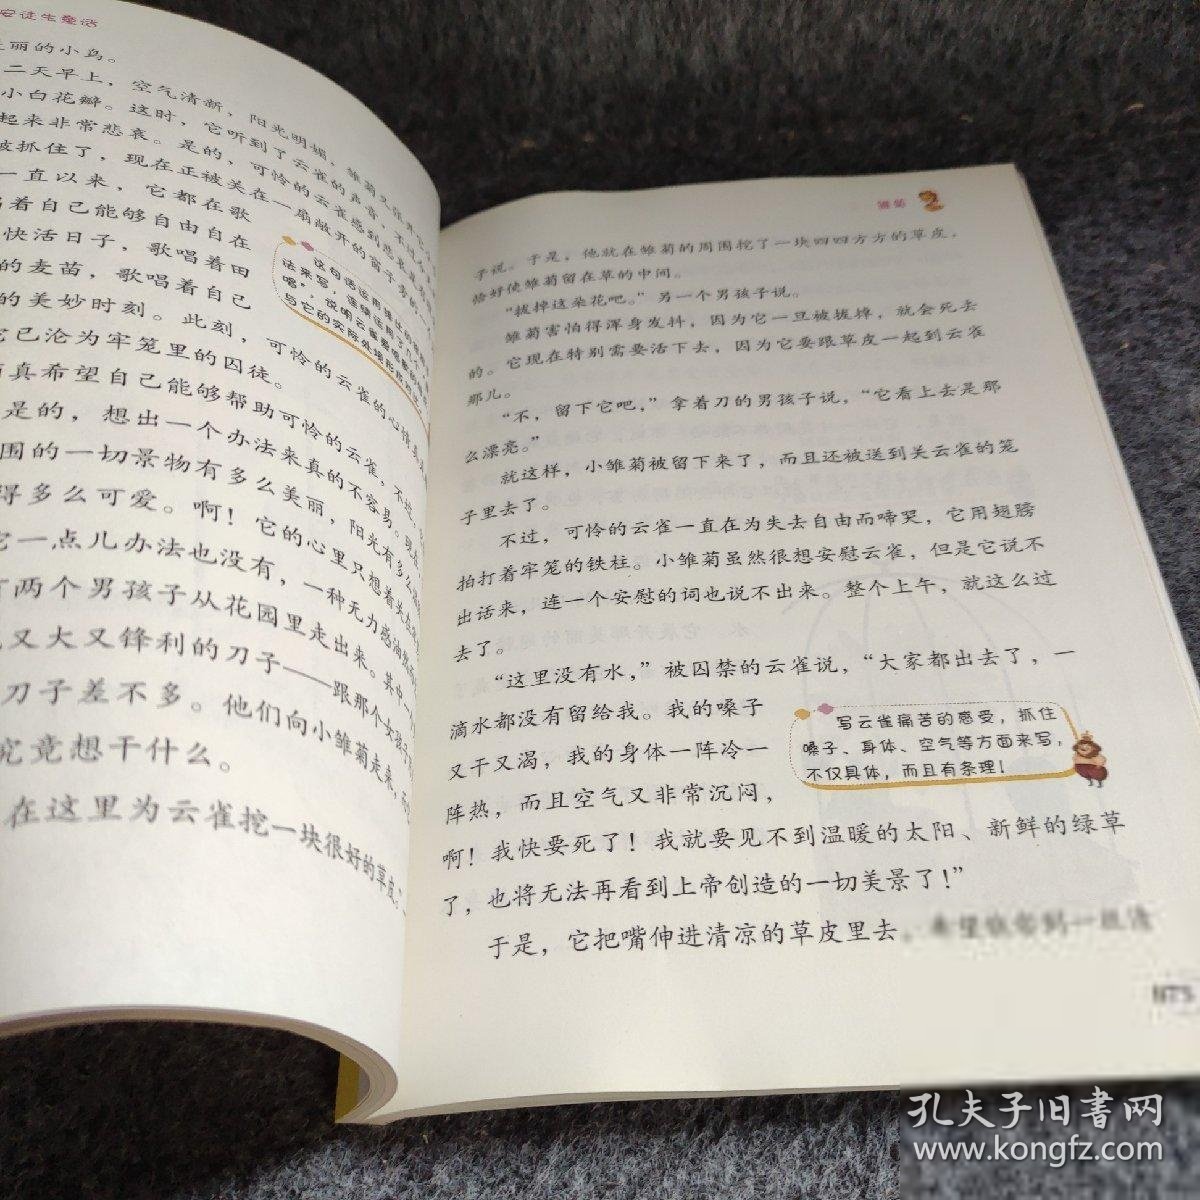 安徒生童话
丽的小鸟。
二天早上，空气清新，阳光明媚，雏菊又张开
小白花瓣。这时，它听到了云雀的声音，不过
起来非常悲哀。是的，可怜的云雀感到悲哀是
被抓住了，现在正被关在一扇敞开的窗子旁的
一直以来，它都在歌
着自己能够自由自在
快活日子，歌唱着田
的麦苗，歌唱着自己
的美妙时刻。此刻，可怜的云雀的心情
它已沦为牢笼里的囚徒。
真希望自己能够帮助可怜的云雀，不过，
是的，想出一个办法来真的不容易。现在
围的一切景物有多么美丽，阳光有多么
得多么可爱。啊！它的心里只想着关在
它一点儿办法也没有，一种无力感油然
两个男孩子从花园里走出来。其中一
又大又锋利的刀子——跟那个女孩子
刀子差不多。他们向小雏菊走来，
究竟想干什么。
在这里为云雀挖一块很好的草皮，”
这句话运用排比的
法来写，连续运用了几个“歌
唱”，说明云雀歌唱
与它的实际处境形成对比
雏菊
子说。于是，他就在雏菊的周围挖了一块四四方方的草皮，
恰好使雏菊留在草的中间。
“拔掉这朵花吧。”另一个男孩子说。
雏菊害怕得浑身发抖，因为它一旦被拔掉，就会死去
的。它现在特别需要活下去，因为它要跟草皮一起到云雀
那儿。
“不，留下它吧，”拿着刀的男孩子说，“它看上去是那
么漂亮。”
就这样，小雏菊被留下来了，而且还被送到关云雀的笼
子里去了。
不过，可怜的云雀一直在为失去自由而啼哭，它用翅膀
拍打着牢笼的铁柱。小雏菊虽然很想安慰云雀，但是它说不
出话来，连一个安慰的词也说不出来。整个上午，就这么过
去了。
“这里没有水，”被囚禁的云雀说，“大家都出去了，一
滴水都没有留给我。我的嗓子
又干又渴，我的身体一阵冷一
阵热，而且空气又非常沉闷，
啊！我快要死了！我就要见不到温暖的太阳、新鲜的绿草
了，也将无法再看到上帝创造的一切美景了！”
于是，它把嘴伸进清凉的草皮里去，希望
写云雀痛苦的感受，抓住
嗓子、身体、空气等方面来写，
不仅具体，而且有条理！
孔夫子旧书网
www.kongfz.com